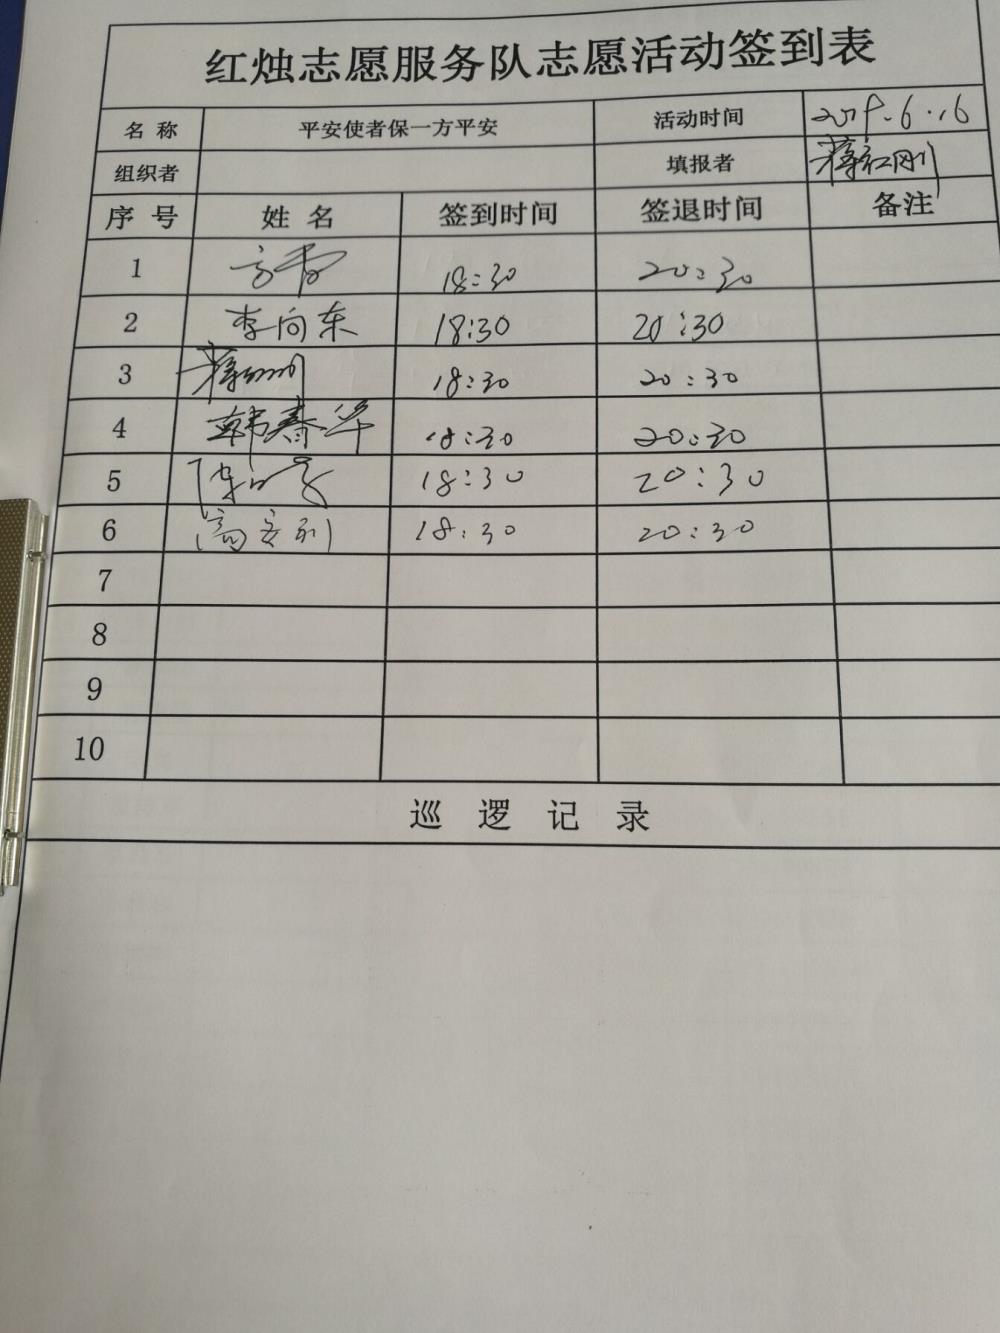 红烛志愿服务队志愿活动签到表
名 称 平安使者保一方平安 活动时间 2019.6.16
组织者 填报者 蒋红刚
序 号 姓 名 签到时间 签退时间 备注
1 18:30 20:30
2 李向东 18:30 20:30
3 18:30 20:30
4 韩春华 18:30 20:30
5 18:30 20:30
6 高安利 18:30 20:30
7
8
9
10
巡 逻 记 录